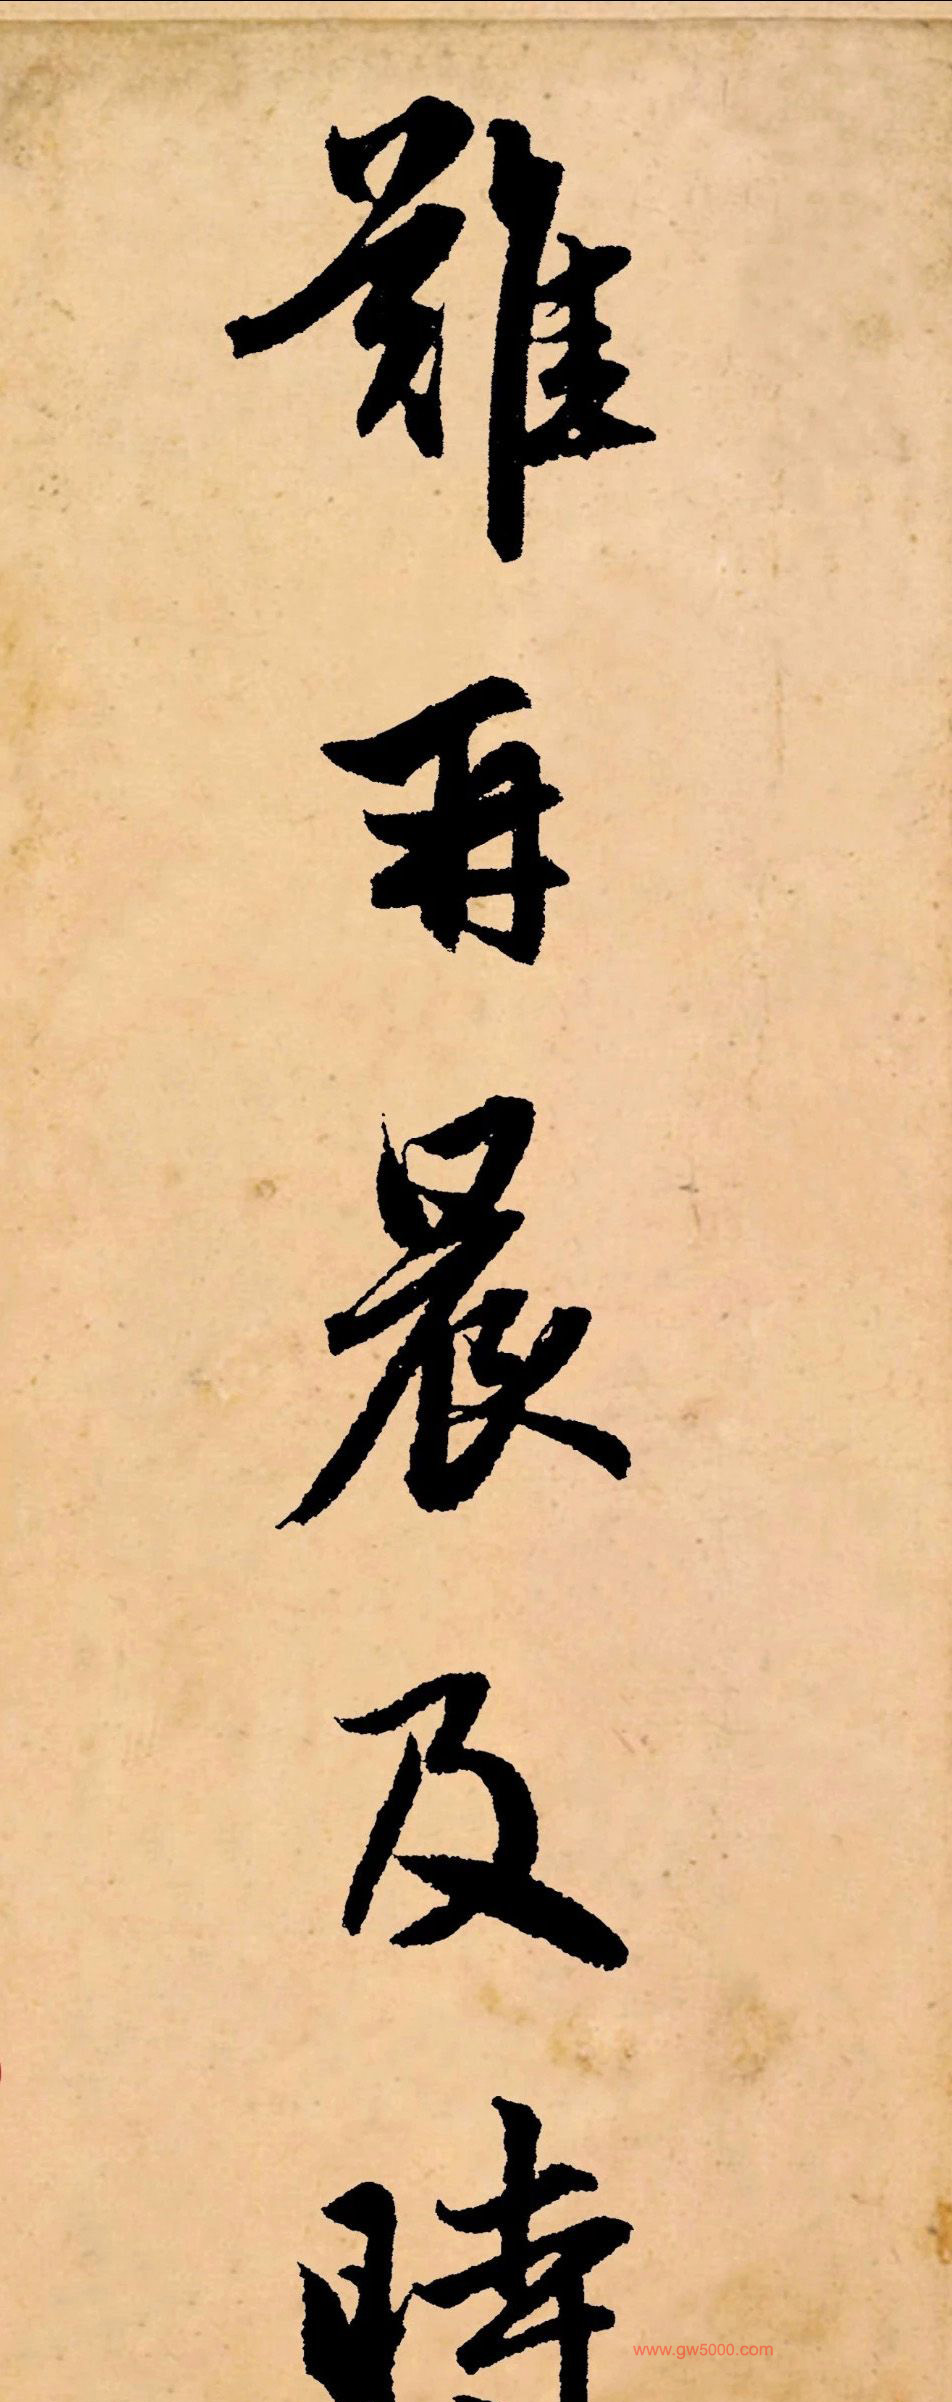 難再晨及時
www.gw5000.com